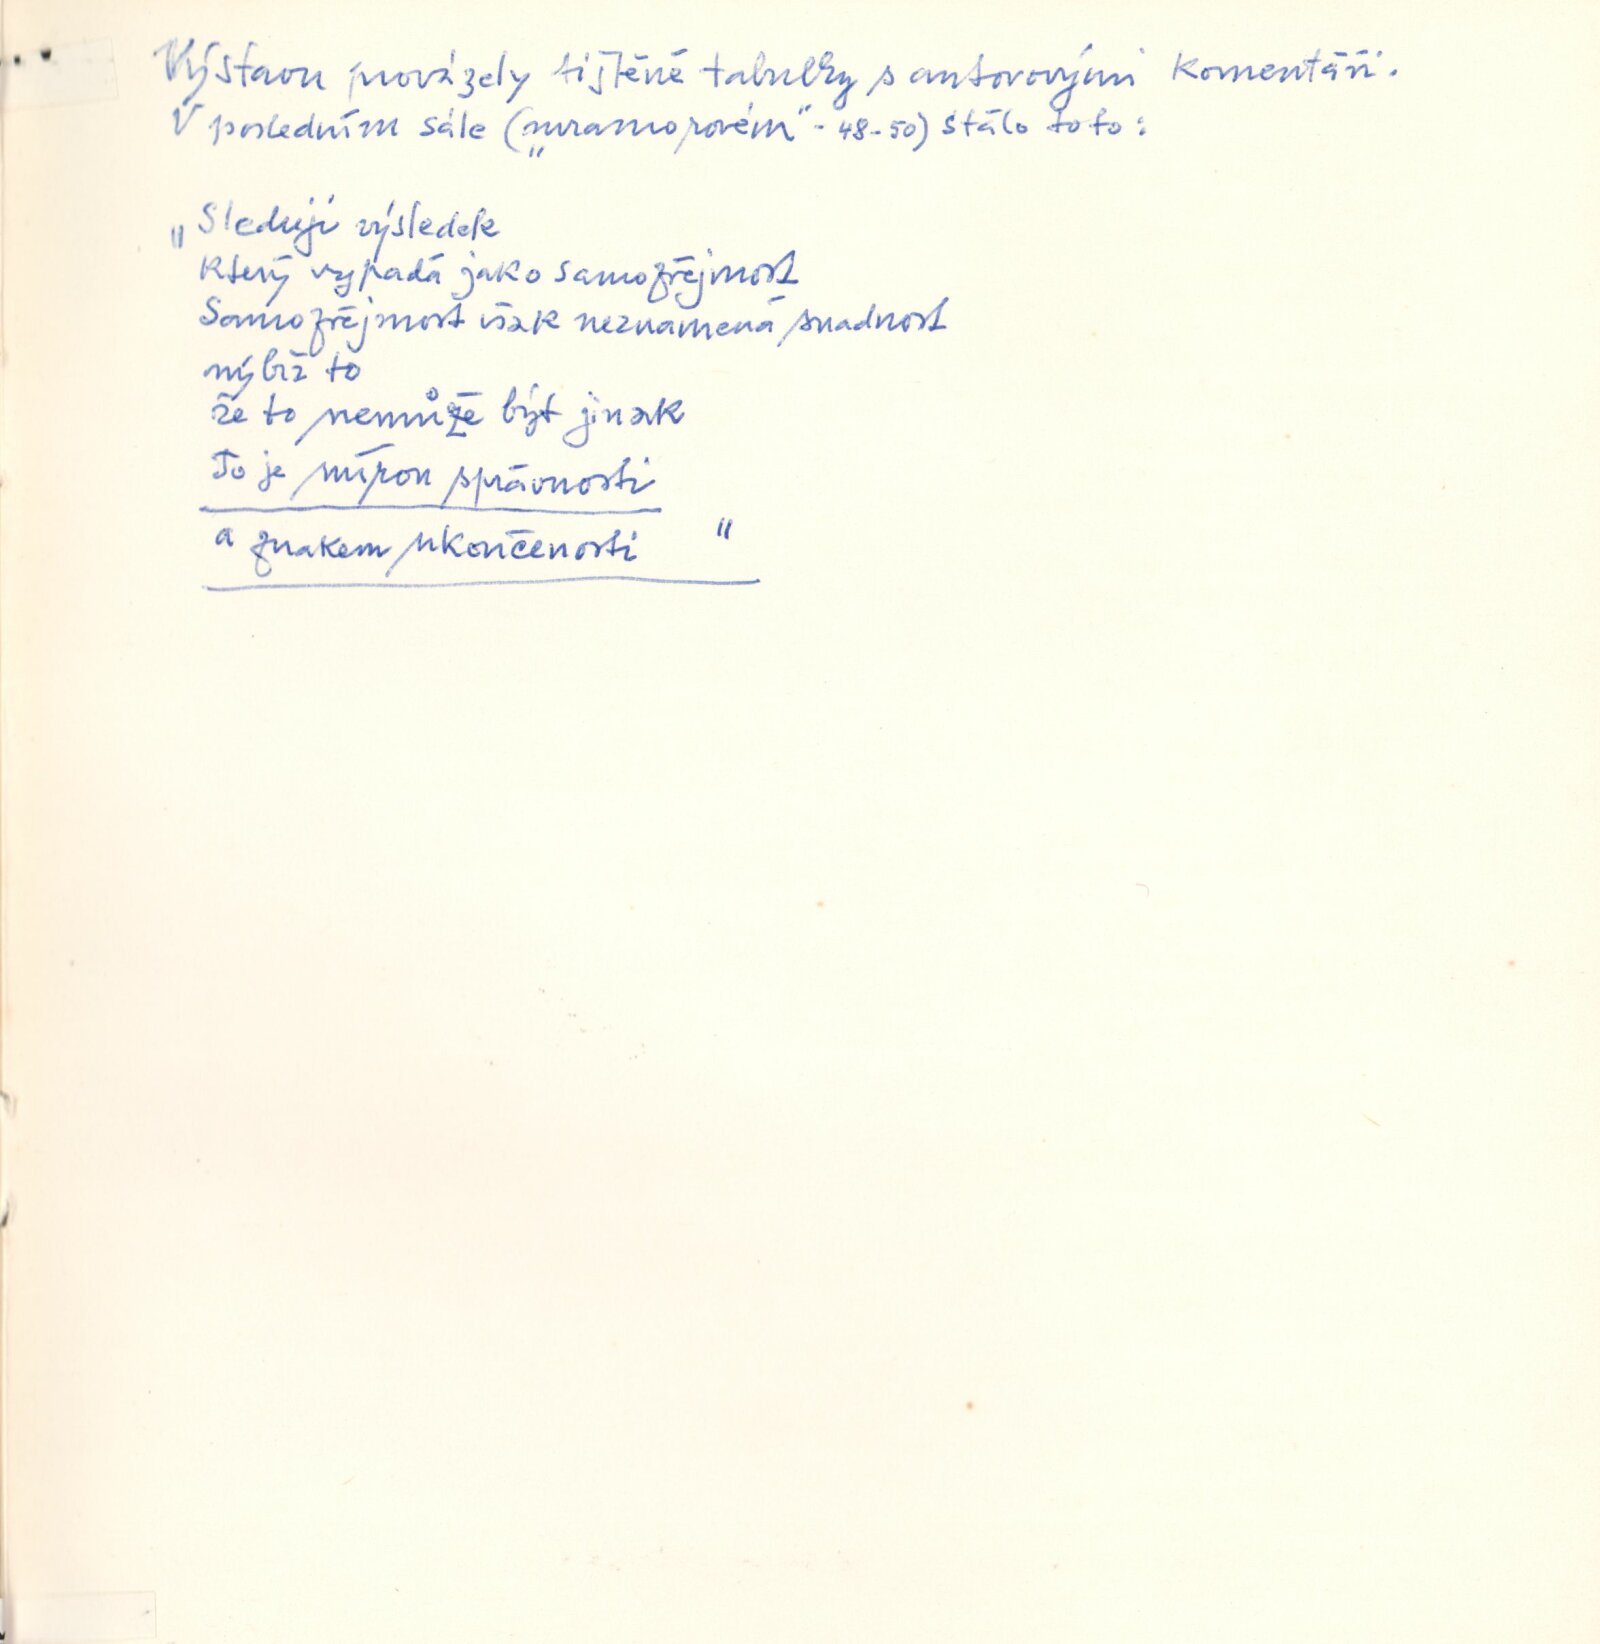 Výstavu provázely tištěné tabulky s autorovými komentáři.
V posledním sále („mramorovém“ - 48-50) stálo toto:
„Sleduji výsledek
který vypadá jako samozřejmost
Samozřejmost však neznamená snadnost
nýbrž to
že to nemůže být jinak
To je mírou správnosti
a znakem ukončenosti "